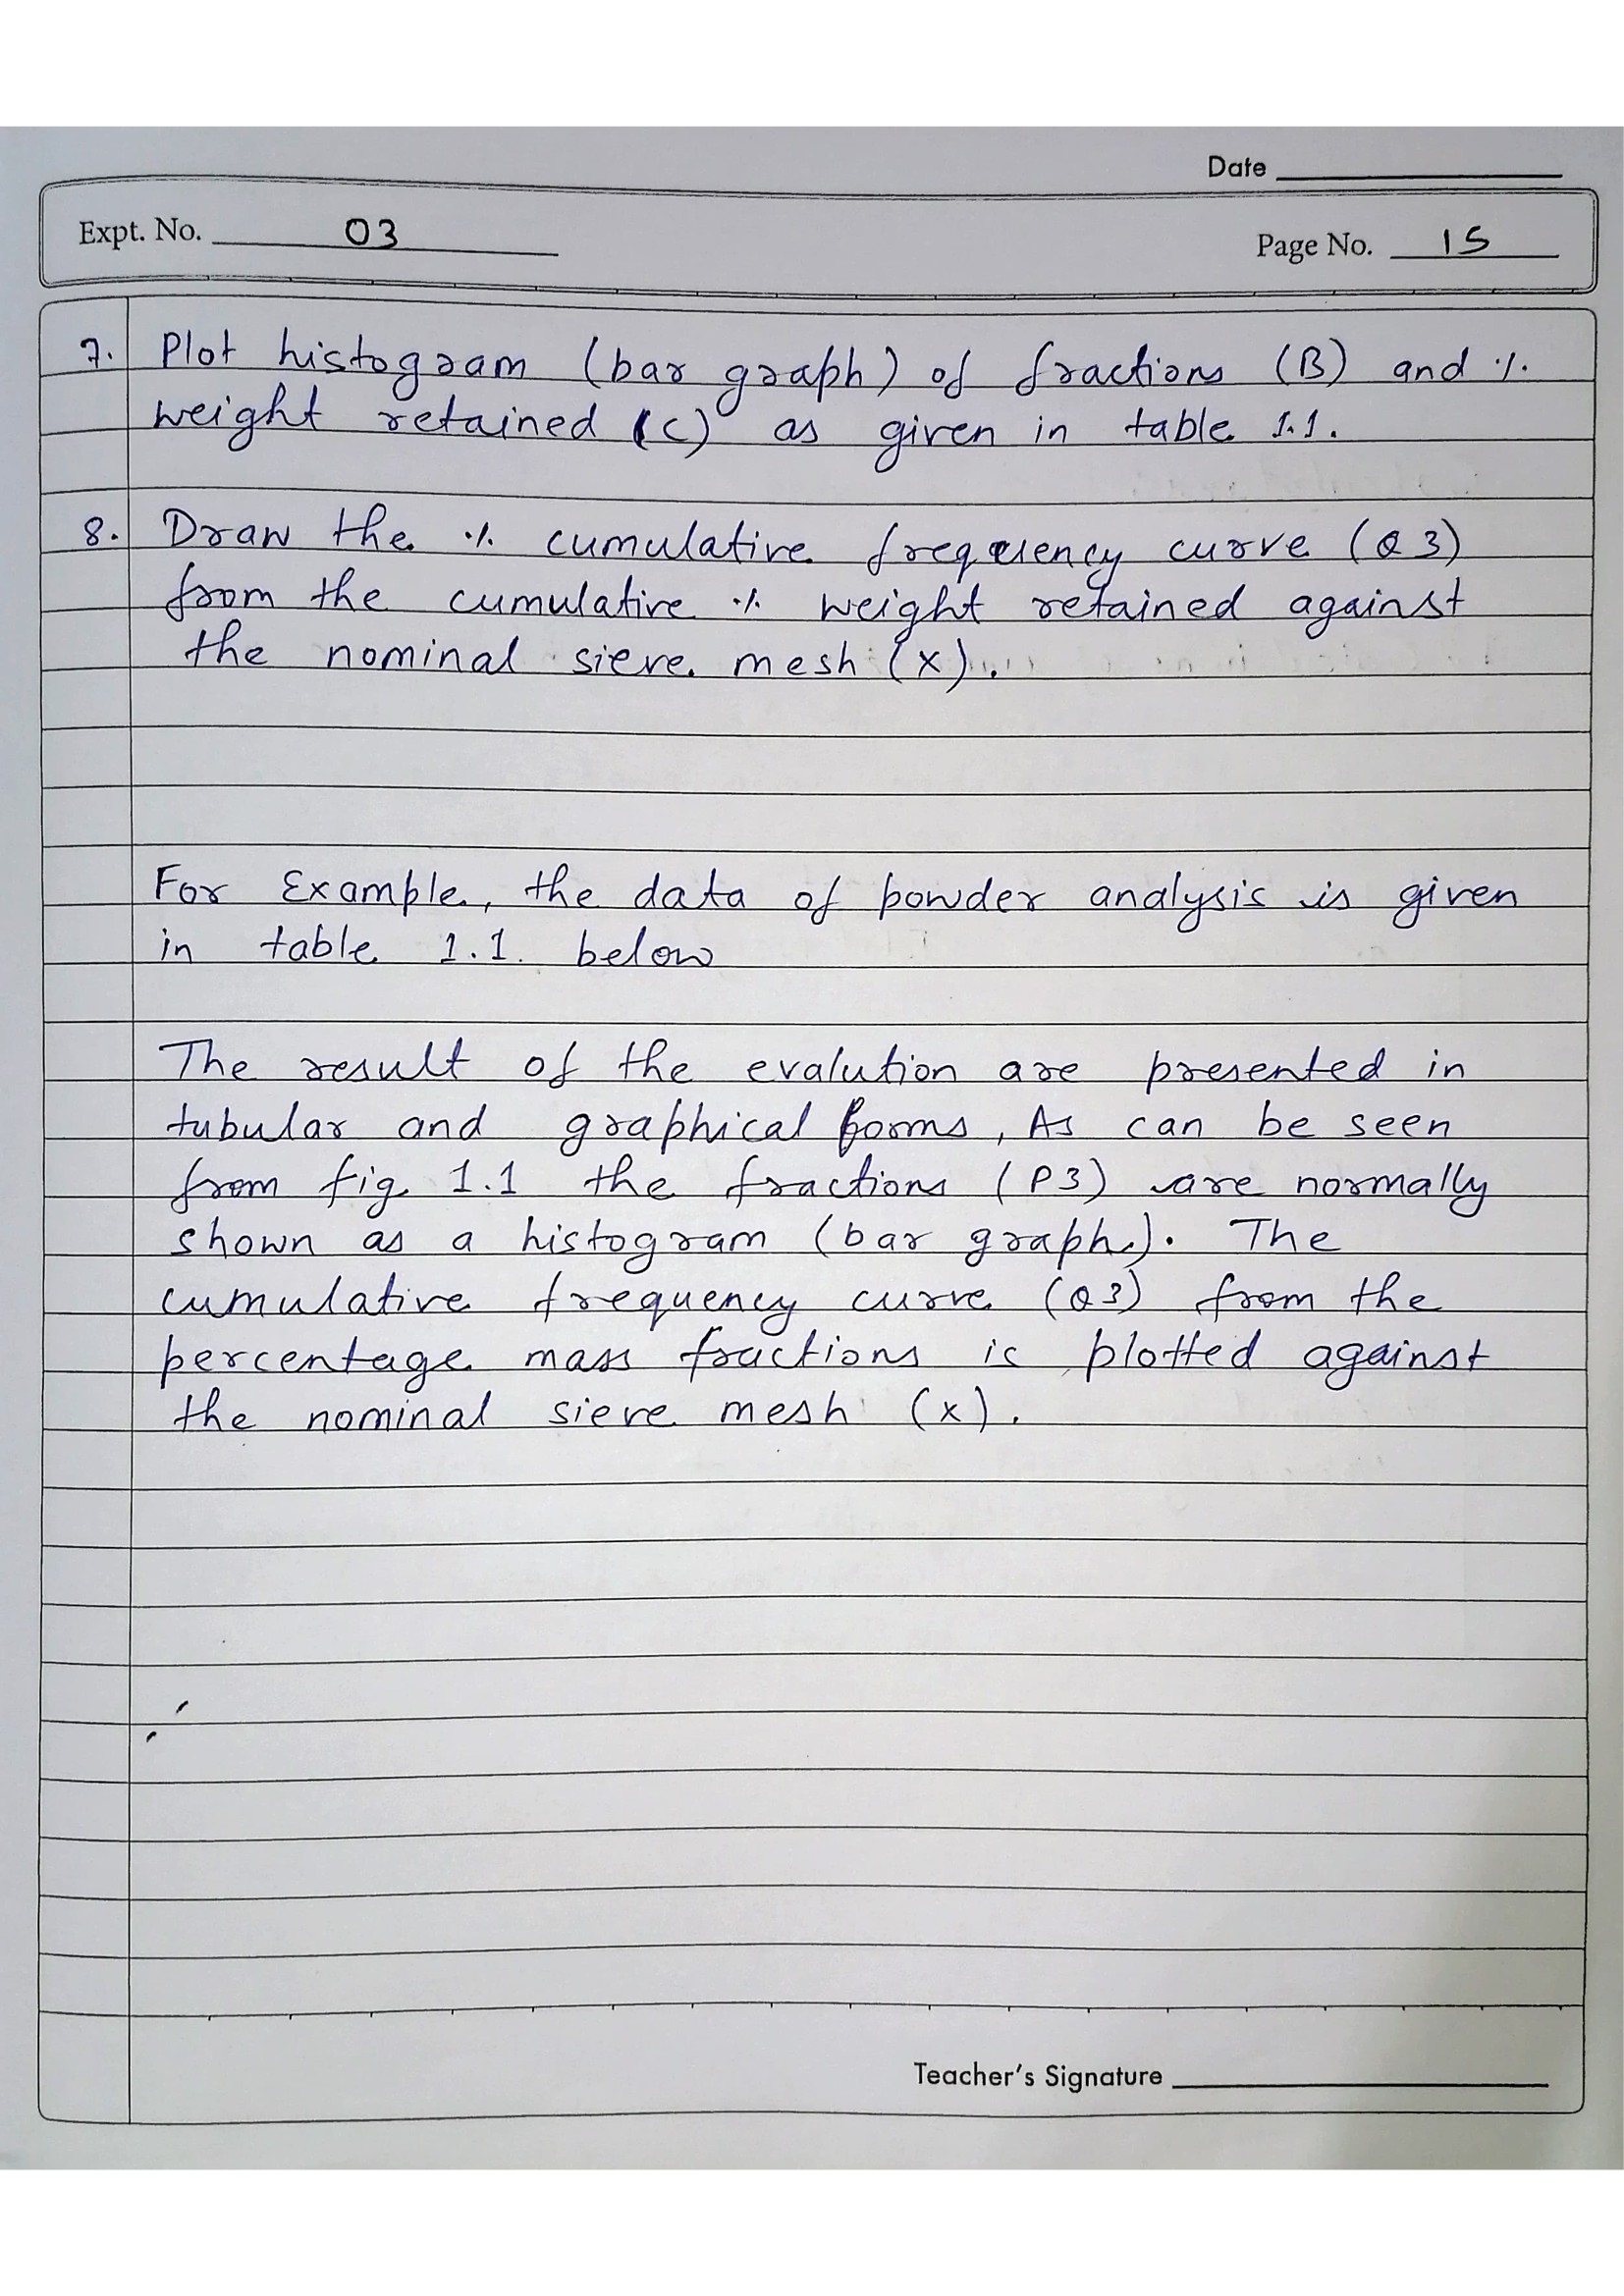 Date
Expt. No. 03
Page No. 15
7. Plot histogram (bar graph) of fractions (B) and %
weight retained (C) as given in table 1.1.
8. Draw the % cumulative frequency curve (Q3)
from the cumulative % weight retained against
the nominal sieve mesh (x).
For Example, the data of powder analysis is given
in table 1.1. below
The result of the evalution are presented in
tubular and graphical forms, As can be seen
from fig. 1.1 the fractions (P3) are normally
shown as a histogram (bar graph). The
cumulative frequency curve (Q3) from the
percentage mass fractions is plotted against
the nominal sieve mesh (x).
Teacher's Signature